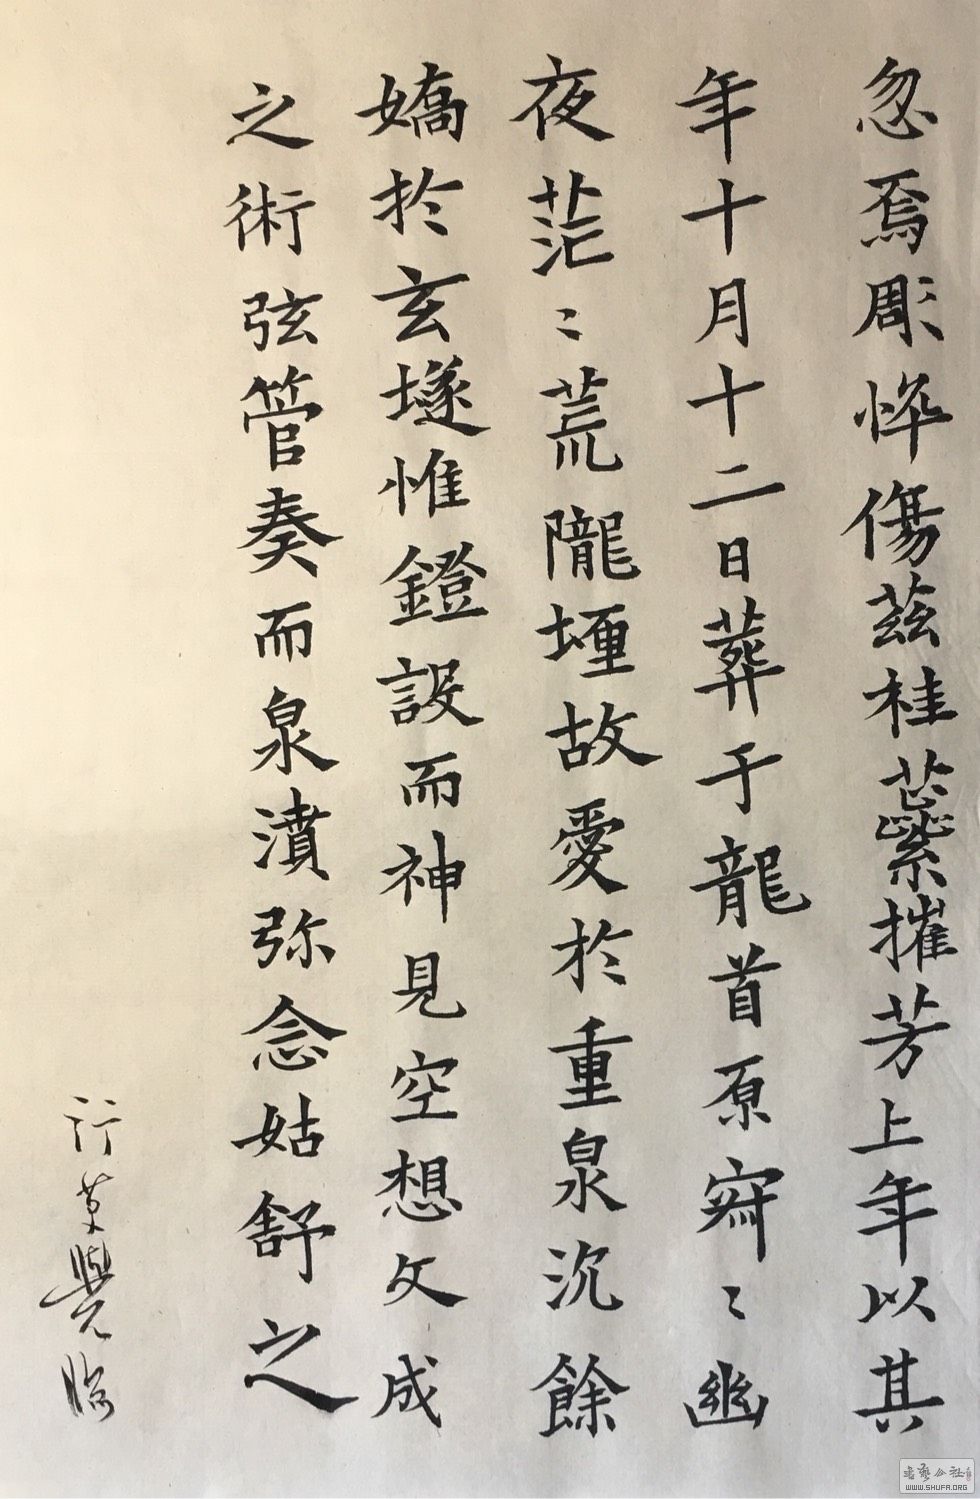 忽焉彫悴傷茲桂蘂摧芳上年以其
年十月十二日葬于龍首原窮〻幽
夜茫〻荒隴堙故愛於重泉沉餘
嬌於玄墜惟鐙設而神見空想文成
之術弦管奏而泉濆弥念姑舒之
臨
書藝公社
WWW.SHUFA.ORG